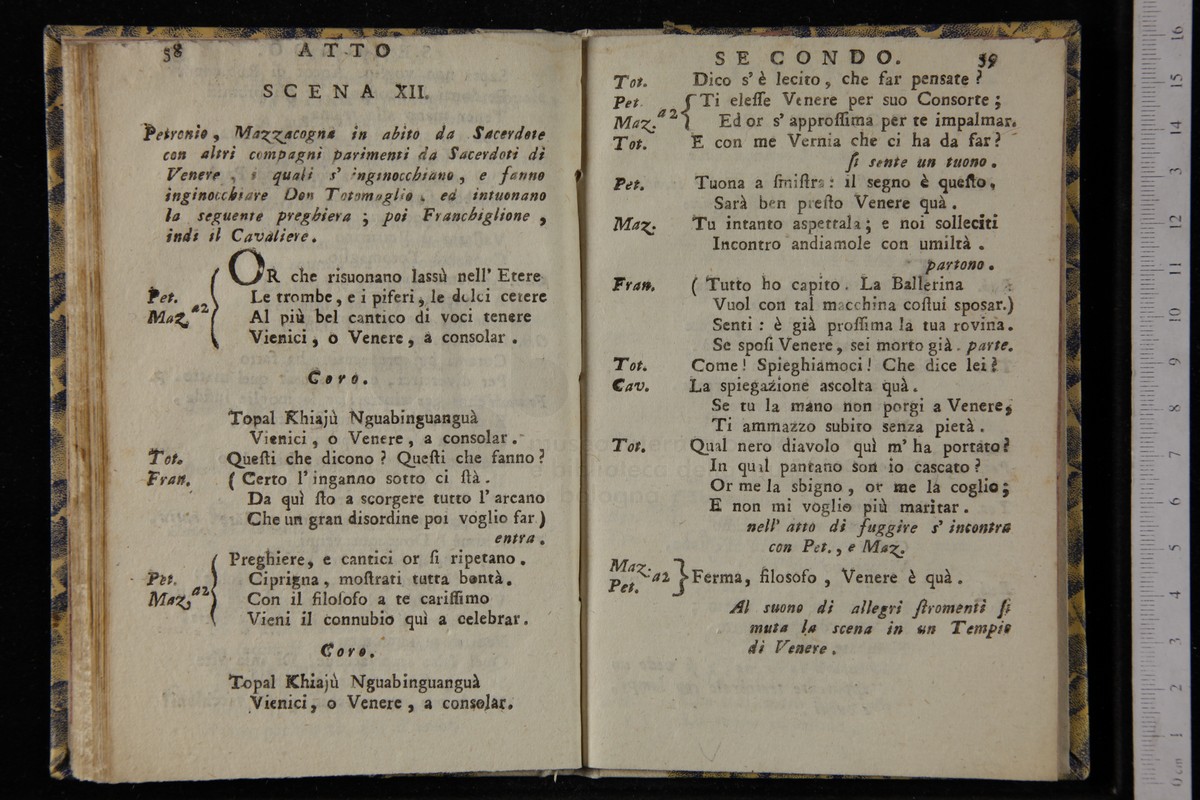 58 ATTO
SCENA XII.
Petronio, Mazzacogna in abito da Sacerdote
con altri compagni parimenti da Sacerdoti di
Venere, i quali s' inginocchiano, e fanno
inginocchiare Don Totomaglio, ed intuonano
la seguente preghiera; poi Franchiglione,
indi il Cavaliere.
OR che risuonano lassù nell' Etere
Pet. Le trombe, e i piferi, le dolci cetere
Maz. a2 Al più bel cantico di voci tenere
Vienici, o Venere, a consolar.
Coro.
Topal Khiajù Nguabinguanguà
Vienici, o Venere, a consolar.
Tot. Queſti che dicono? Queſti che fanno?
Fran. (Certo l' inganno sotto ci ſtà.
Da quì ſto a scorgere tutto l' arcano
Che un gran disordine poi voglio far)
entra.
Preghiere, e cantici or ſi ripetano.
Pet. Ciprigna, moſtrati tutta bontà.
Maz. a2 Con il filoſofo a te cariſſimo
Vieni il connubio quì a celebrar.
Coro.
Topal Khiajù Nguabinguanguà
Vienici, o Venere, a consolar.
SECONDO. 59
Tot. Dico s' è lecito, che far pensate?
Pet. Ti eleſſe Venere per suo Consorte;
Maz. a2 Ed or s' approſſima per te impalmar.
Tot. E con me Vernia che ci ha da far?
ſi sente un tuono.
Pet. Tuona a ſiniſtra: il segno è queſto,
Sarà ben preſto Venere quà.
Maz. Tu intanto aspettala; e noi solleciti
Incontro andiamole con umiltà.
partono.
Fran. (Tutto ho capito. La Ballerina
Vuol con tal macchina coſtui sposar.)
Senti: è già proſſima la tua rovina.
Se spoſi Venere, sei morto già. parte.
Tot. Come! Spieghiamoci! Che dice lei?
Cav. La spiegazione ascolta quà.
Se tu la mano non porgi a Venere,
Ti ammazzo subito senza pietà.
Tot. Qual nero diavolo quì m' ha portato?
In qual pantano son io cascato?
Or me la sbigno, or me la coglio;
E non mi voglio più maritar.
nell' atto di fuggire s' incontra
con Pet., e Maz.
Maz.
Pet. a2 Ferma, filosofo, Venere è quà.
Al suono di allegri ſtromenti ſi
muta la scena in un Tempio
di Venere.